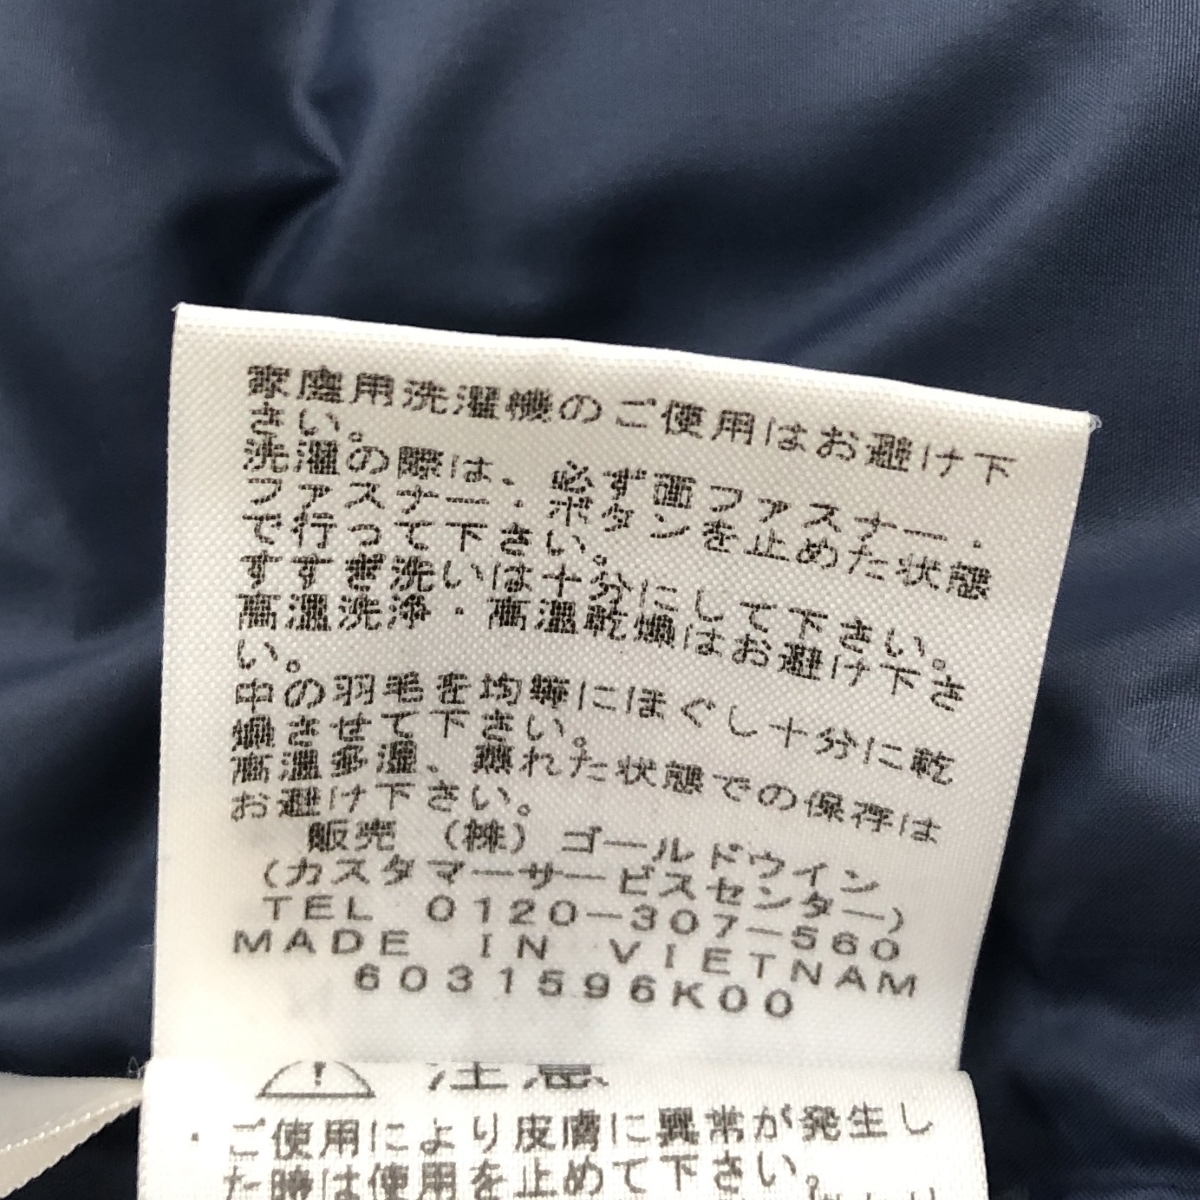 家庭用洗濯機のご使用はお避け下
さい。
洗濯の際は、必ず面ファスナー・
ファスナー・ボタンを止めた状態
で行って下さい。
すすぎ洗いは十分にして下さい。
高温洗浄・高温乾燥はお避け下さ
い。
中の羽毛を均等にほぐし十分に乾
燥させて下さい。
高温多湿、蒸れた状態での保存は
お避け下さい。
販売 (株) ゴールドウイン
(カスタマーサービスセンター)
TEL 0120-307-560
MADE IN VIETNAM
6031596K00
注意
・ご使用により皮膚に異常が発生し
た時は使用を止めて下さい。